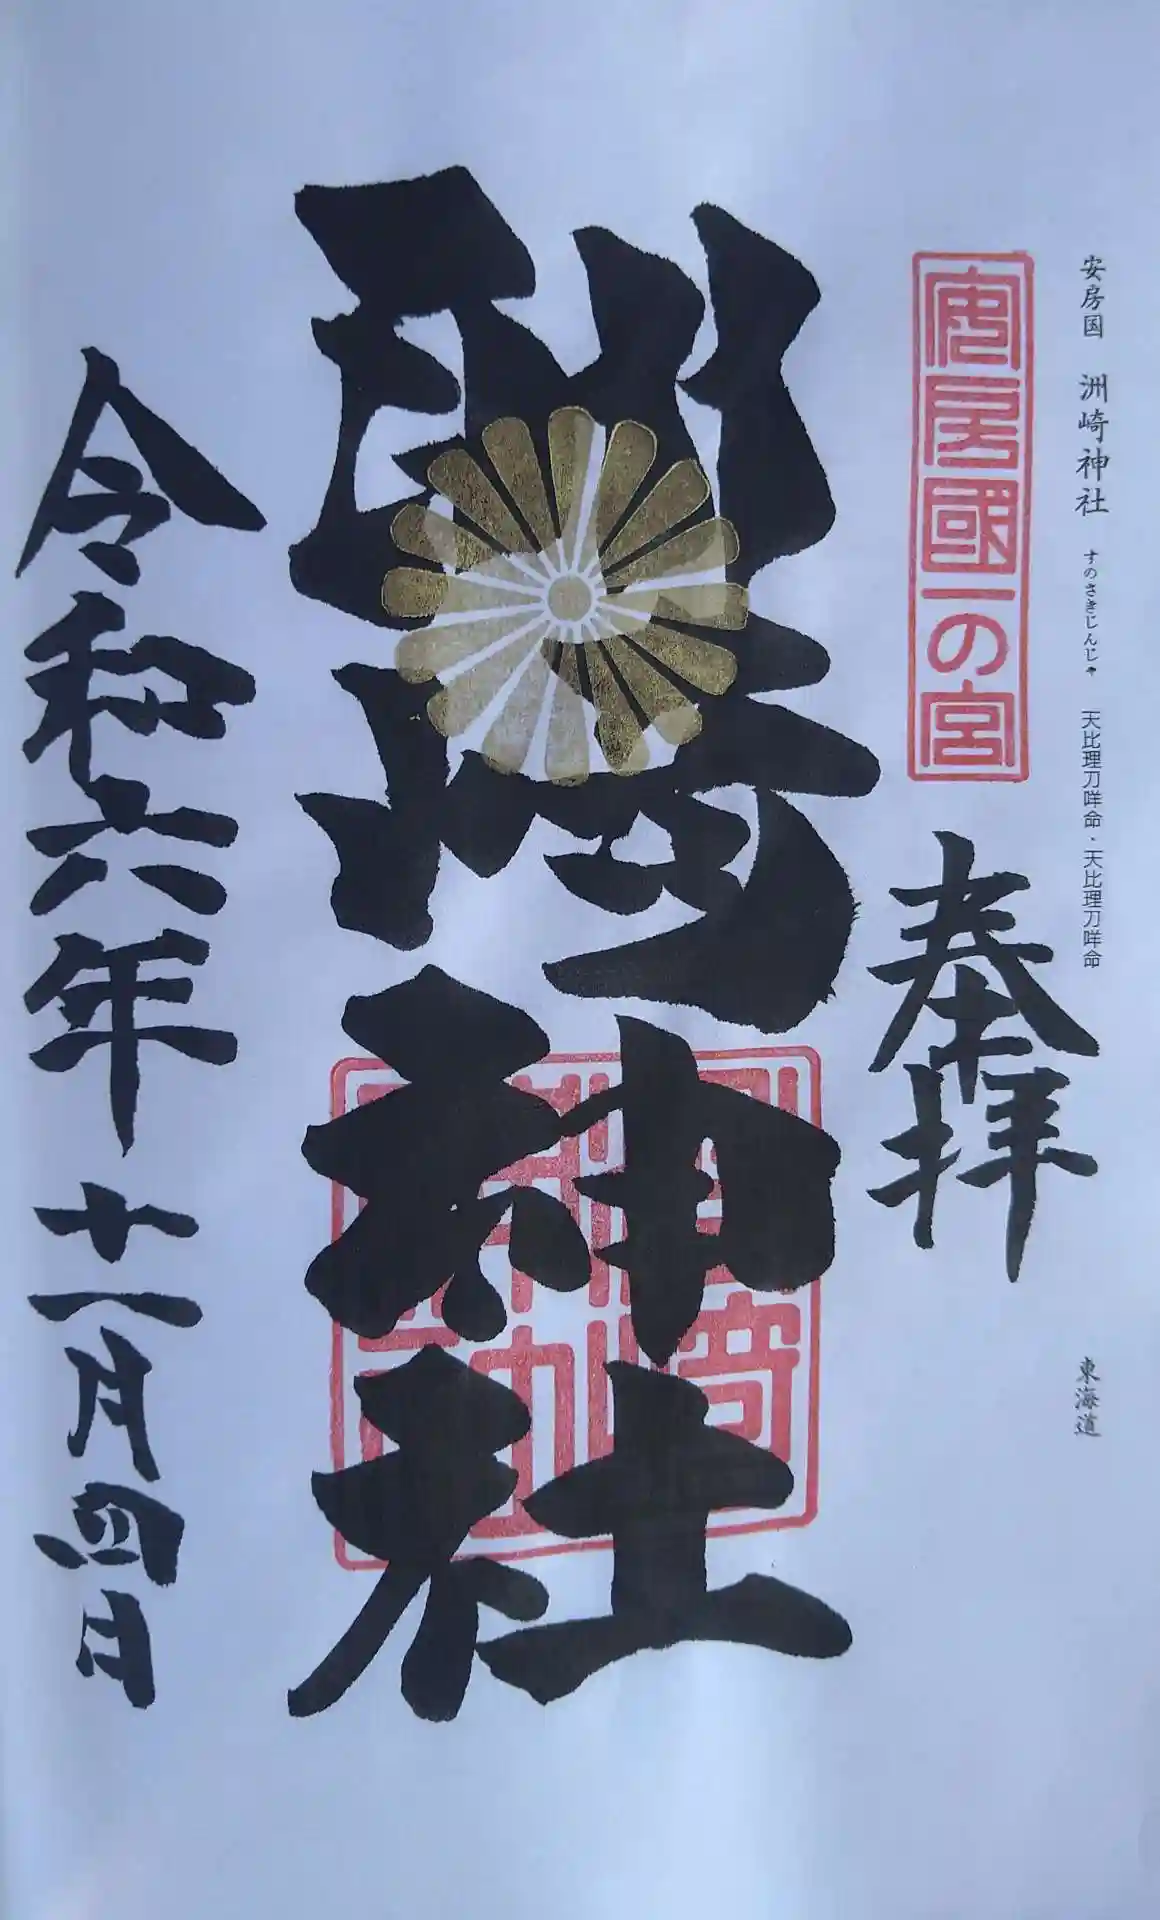 安房国 洲崎神社 すのさきじんじゃ 天比理刀咩命・天比理刀咩命 東海道
安房國一の宮
奉拝
洲崎神社
洲崎神社
令和六年 十一月四日